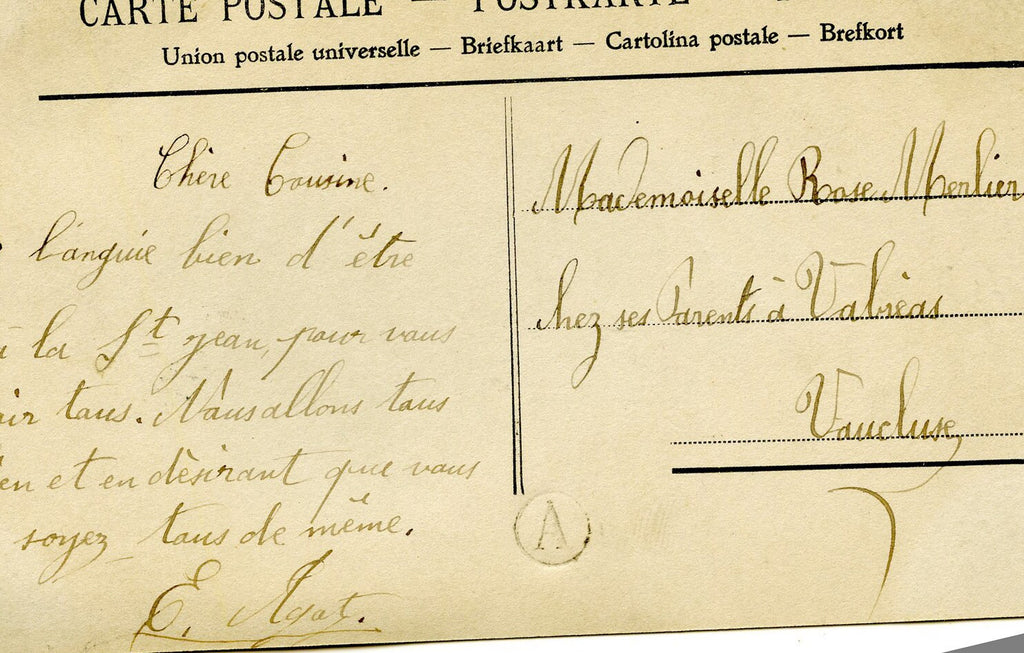 CARTE POSTALE — POSTKARTE
Union postale universelle — Briefkaart — Cartolina postale — Brefkort
Chère Cousine.
languie bien d'être
à la St jean, pour vous
oir tous. Nous allons tous
en et en dèsirant que vous
soyez tous de même.
E. Agat.
Mademoiselle Rose Merlier
chez ses Parents à Valréas
Vaucluse
A